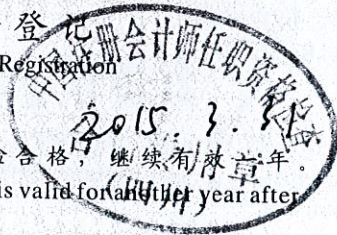 登记
Registration
中国注册会计师任职资格检查
2015.3.31
合格，继续有效一年。
章
is valid for another year after